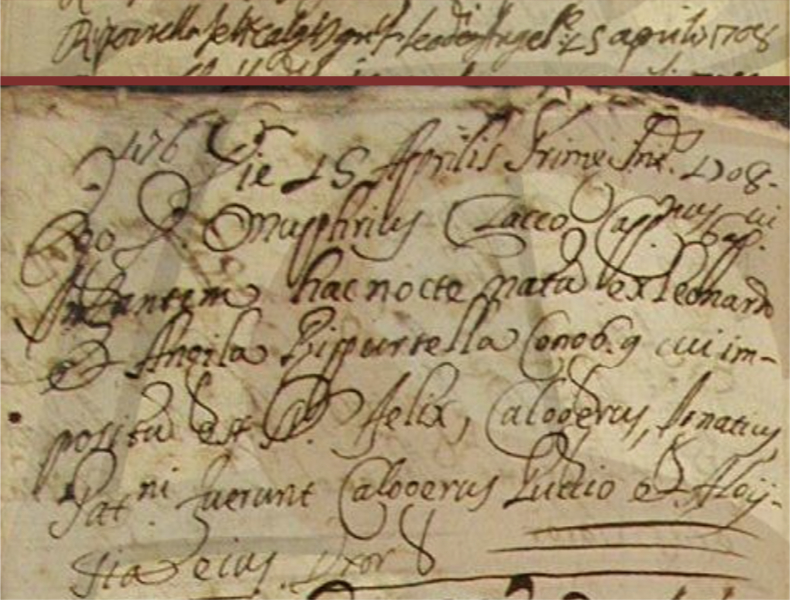 Ripurrella felice calog.o Ign.o f. leod. et Angel.e 25 aprilis 1708
176 Die 25 Aprilis Prime Ind. 1708.
Ego D. Onuphrius Zacco Capp.nus
Infantem hac nocte natu ex Leonardo
et Angila Rippurrella Conob. q cui im-
positu est N. Felix, Calogerus, Ignatius
Pat.ni fuerunt Calogerus Puccio et Aloy-
sia eius Uxor